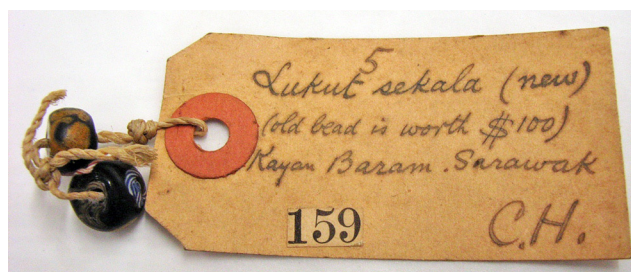 5
Lukut sekala (new)
(old bead is worth $100)
Kayan Baram. Sarawak
159
C.H.